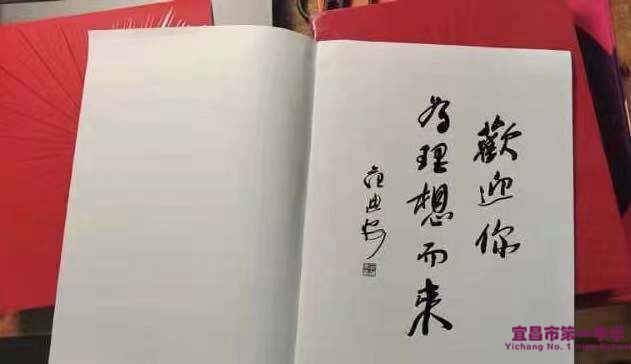 歡迎你
為理想而来
范迪安
宜昌市第一中学
Yichang No. 1 High School